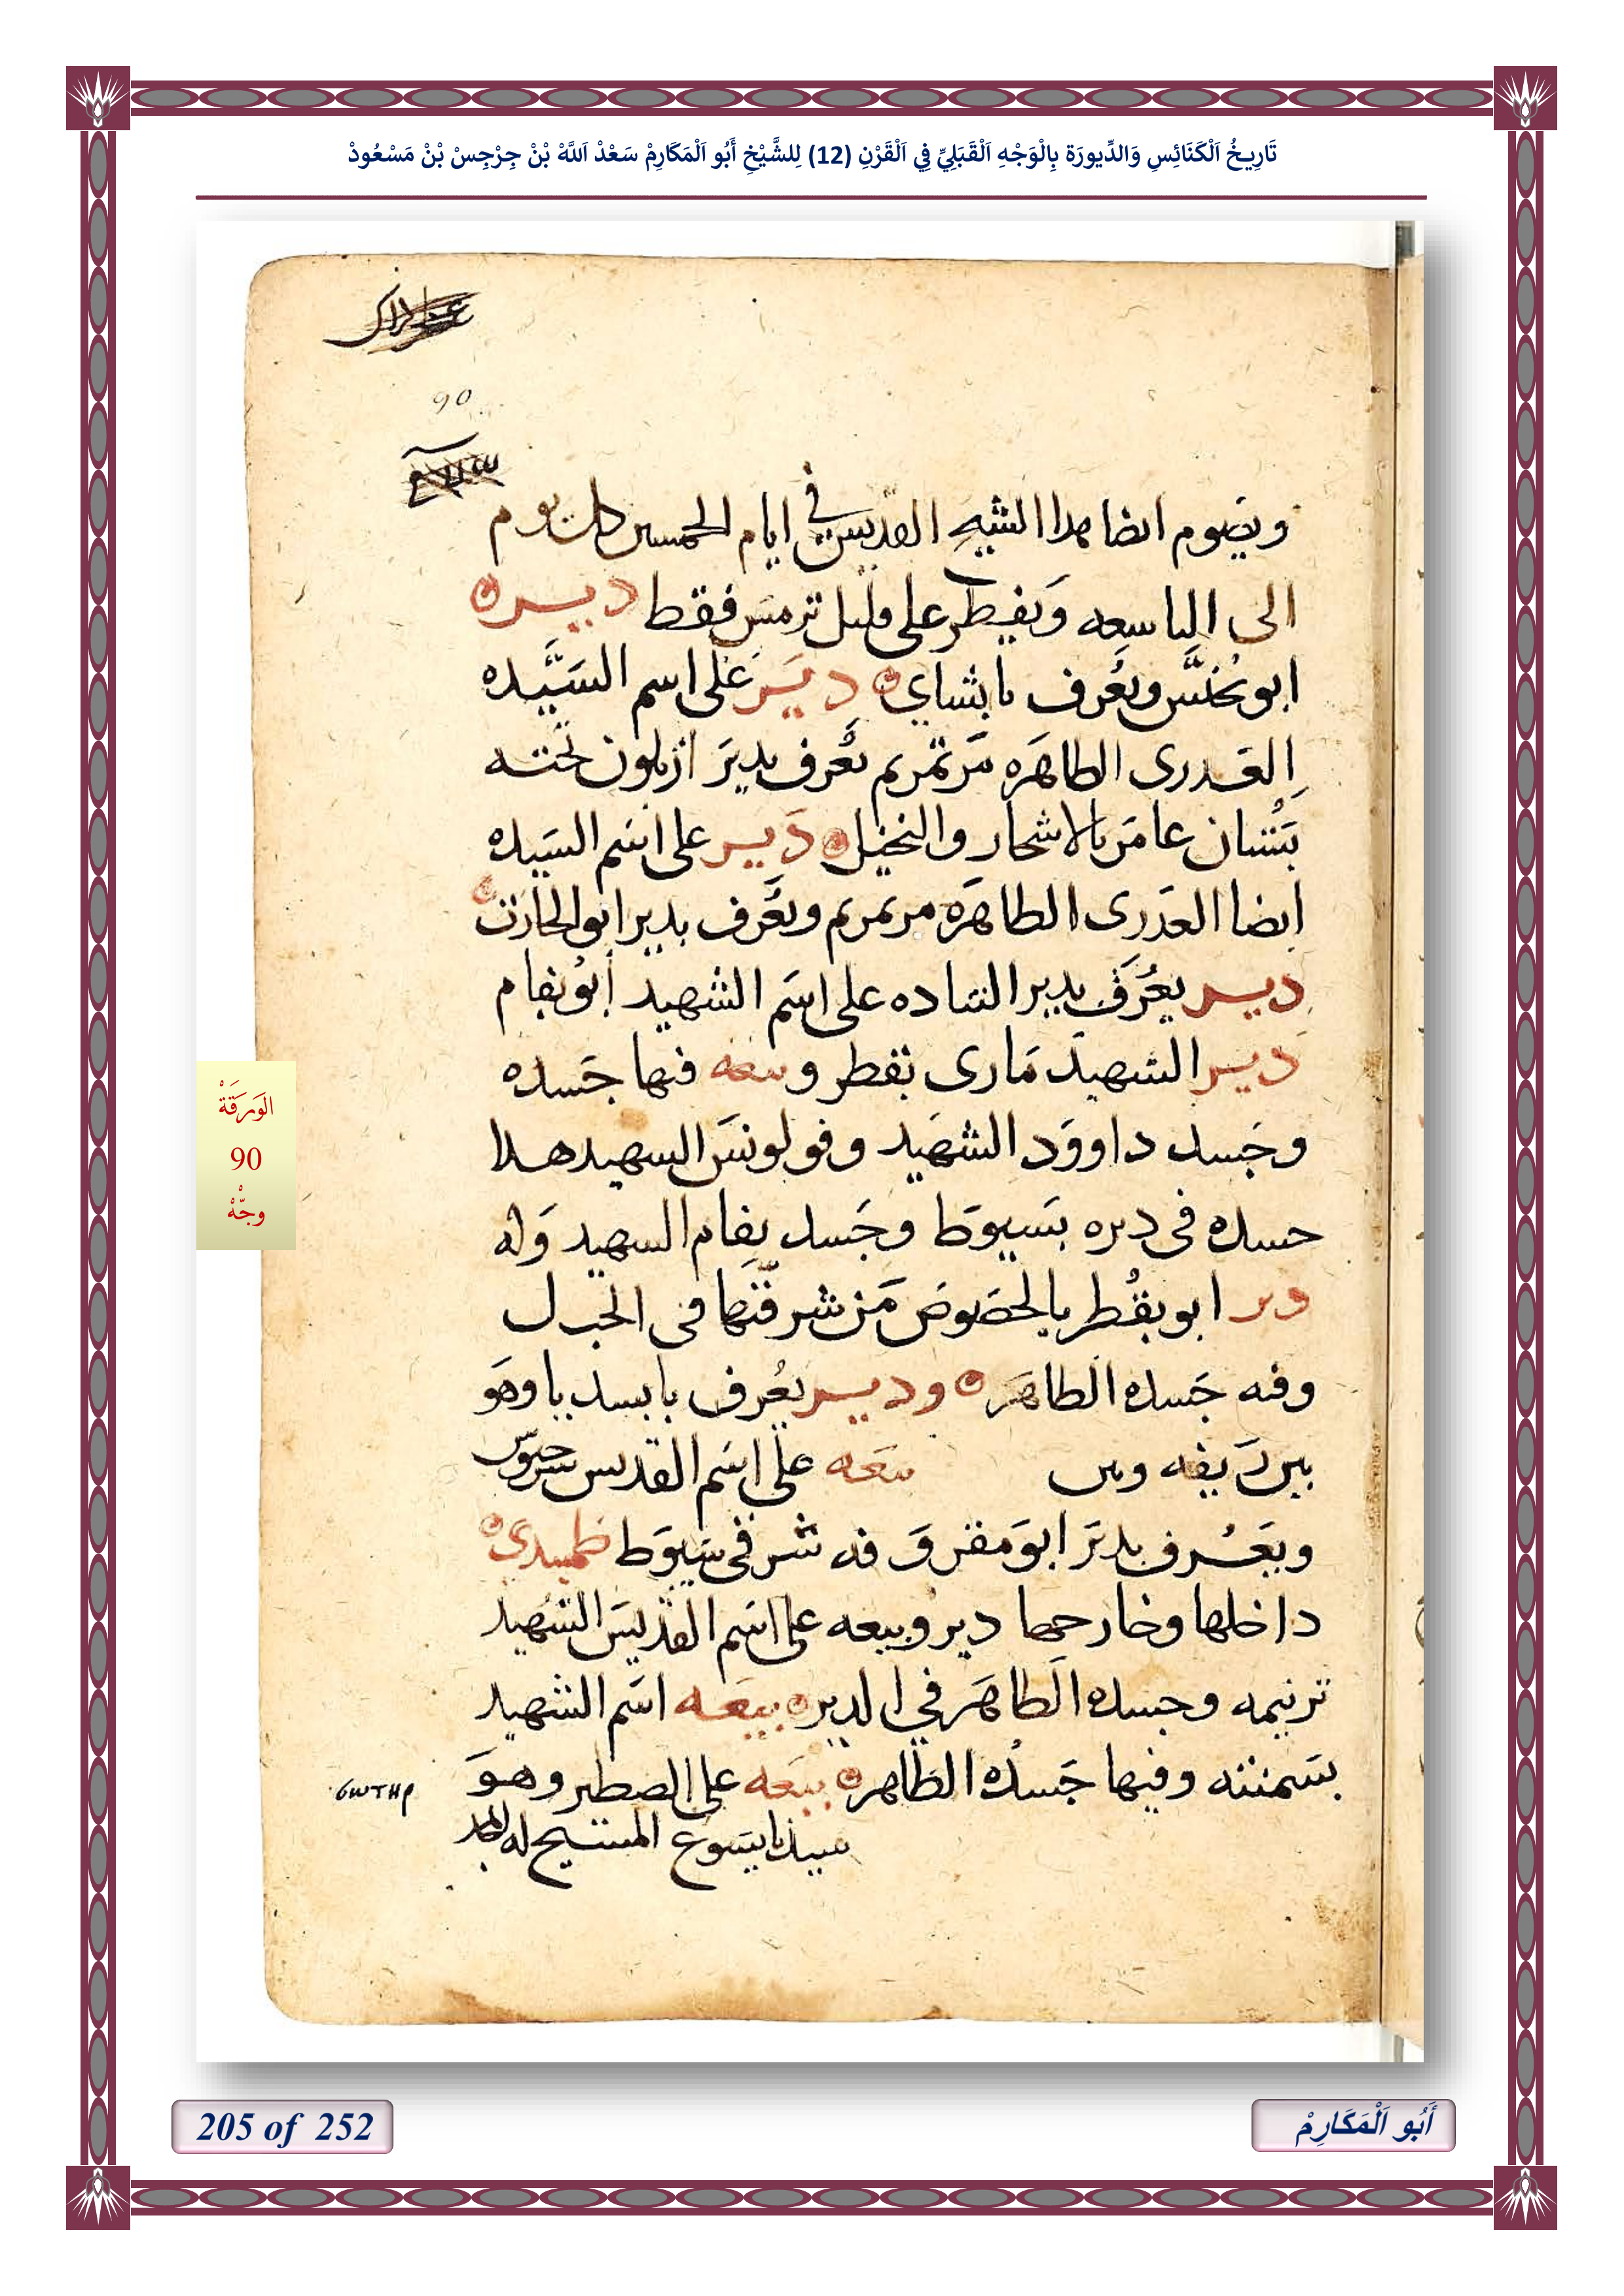 تَارِيخُ اَلْكَنَائِسِ وَالدِّيورَة بِالْوَجْهِ اَلْقَبَلِيِّ فِي اَلْقَرْنِ (12) لِلشَّيْخِ أَبُو اَلْمَكَارِمْ سَعْدْ اَللَّهْ بْنْ جِرْجِسْ بْنْ مَسْعُودْ
90
ويصوم ايضا هدا الشيخ القديس في ايام الخمسين كل يوم
الى التاسعه ويفطر على قليل ترمس فقط دير
ابو يحنس ويعرف بابشاي دير على اسم السيده
العدرى الطاهره مرتمريم يعرف بدير ازيلون تحته
بستان عامر بالاشجار والنخيل دير على اسم السيده
ايضا العدرى الطاهره مرتمريم ويعرف بدير ابو الحارث
دير يعرف بدير الساده على اسم الشهيد ابو بفام
دير الشهيد مارى بقطر وبيعه فيها جسده
وجسد داوود الشهيد وفولونس الشهيد هدا
جسده فى ديره بسيوط وجسد بفام الشهيد وله
دير ابو بقطر بالخصوص من شرقيها فى الجبل
وفيه جسده الطاهر ودير يعرف بابسديا وهو
بين ريفه وبين بيعه على اسم القديس سرجيوس
ويعرف بدير ابو مقروفه شرقى سيوط طمبدى
داخلها وخارجها دير وبيعه على اسم القديس الشهيد
ترنيمه وجسده الطاهر في الدير بيعه اسم الشهيد
بسمنته وفيها جسده الطاهر بيعه على الصطير وهو
ⲥⲱⲧⲏⲣ
سيدنا يسوع المسيح له المجد
الوَرَقَةْ
90
وجّهْ
205 of 252
أَبُو اَلْمَكَارِمْ